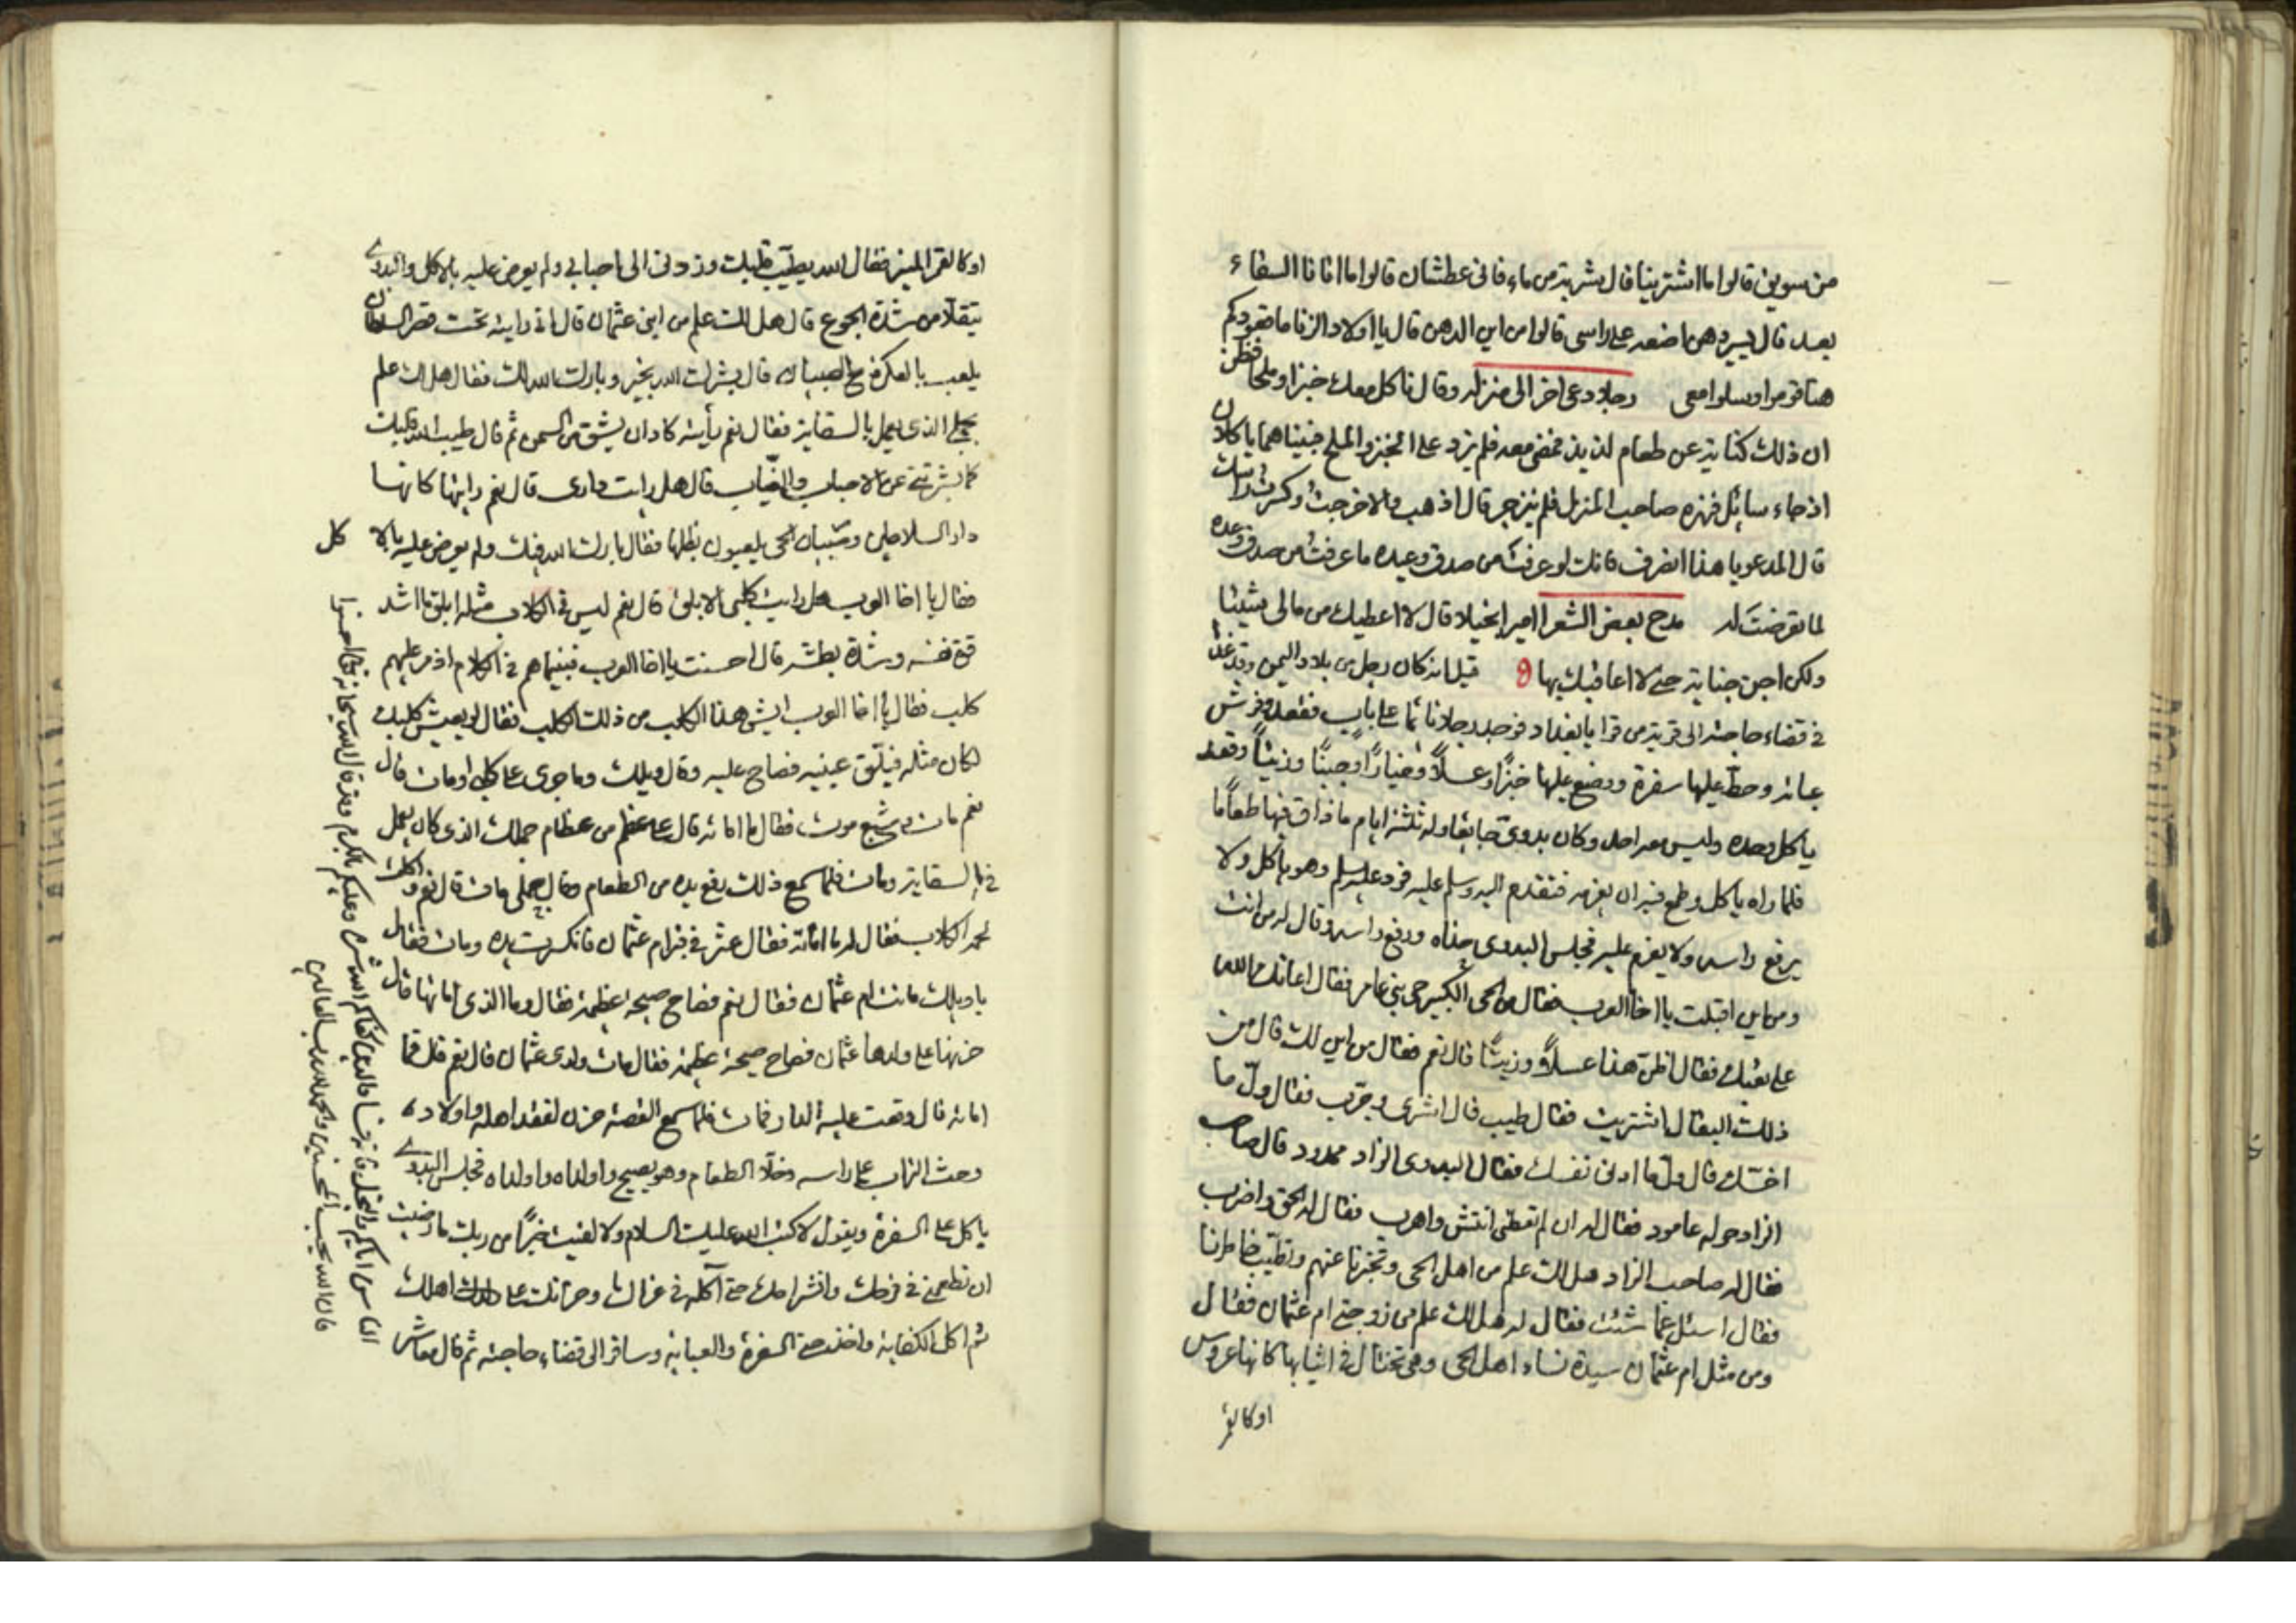 من سويق قالوا ما اشترينا قال بشربة من ماء فانى عطشان قالوا ما اتانا السقاء
بعد قال يسير دهن اضعه على راسى قالوا من اين الدهن قال يا اولاد الزنا ما قعودكم
هنا قوموا وسلوا معى رجلا دعى اخر الى منزله وقال ناكل معك خبزا وملحا فظن
ان ذلك كناية عن طعام لذيذ فمضى معه فلم يزد على الخبز والملح فبينا هما ياكلان
اذ جاء سائل فنهره صاحب المنزل فلم ينزجر قال اذهب والا خرجت وكسرت راسك
قال المدعو يا هذا انصرف فانك لو عرفت من صدق وعيده ما عرفت من صدق وعده
لما تعرضت له مدح بعض الشعرا امير بخيلا قال لا اعطيك من مالى شيئا
ولكن اجن جناية حتى لا اعاقبك بها قيل انه كان رجل من بلاد اليمن وقد غدا
فى قضاء حاجته الى قرية من قرا يا بغداد فوجد رجلا نائما على باب فقعد وفرش
عبائه وحط عليها سفرة ووضع عليها خبزا وعسلا وخيارا وجبنا وزيتا وقعد
ياكل وحده وليس معه احد وكان بدوى جايعا وله ثلثة ايام ما ذاق فيها طعاما
فلما راه ياكل وطمع فيه ان يعزمه فتقدم اليه وسلم عليه فرد عليه سلم وهو ياكل ولا
يرفع راسه ولا يعزم عليه فجلس البدوى حذاه ورفع راسه وقال له من انت
ومن اين اقبلت يا اخا العرب فقال من الحى الكبير حى بنى عامر فقال اعانك الله
على تعبك فقال اظن هذا عسلا وزيتا قال نعم فقال من اين لك قال من
ذلك البقال اشتريت فقال طيب قال اشرى وجرب فقال ول ما
اخسك قال ول ما ادنى نفسك فقال البدوى الزاد ممدود قال صاحب
الزاد حوله عامود فقال له ان لم تعطنى انتش واهرب فقال له الحق واضرب
فقال له صاحب الزاد هل لك علم من اهل الحى وتخبرنا عنهم وتطيب خاطرنا
فقال اسئل عما شئت فقال له هل لك علم من زوجتى ام عثمان فقال
ومن مثل ام عثمان سيدة نساء اهل الحى وهى تختال فى اثيابها كانها عروس
او كالقمر
او كالقمر المنير فقال الله يطيب قلبك وزدنى الى احبابى ولم يعرض عليه بالاكل والبدوى
يتقلا من شدة الجوع قال هل لك علم من ابنى عثمان قال انى رايته تحت قصر السلطان
يلعب بالعكرفة مع الصبيان قال بشرك الله بخير وبارك الله لك فقال هل لك علم
بجملى الذى يعمل بالسقاية فقال نعم رأيته كاد ان ينشق من السمن ثم قال طيب الله قلبك
كما بشرتنى عن الاحباب والغياب قال هل رايت دارى قال نعم رايتها كانها
دار السلاطين وشبان الحى يلعبون بظلها فقال بارك الله فيك ولم يعرض عليه بالاكل
فقال يا اخا العرب هل رايت كلبى الابلق قال نعم ليس فى الكلاب مثله ابلق ما اشد
وشدة بطشه قال احسنت يا اخا العرب فبينما هم فى الكلام اذ مر عليهم
كلب فقال يا اخا العرب ايش هذا الكلب من ذلك الكلب فقال لو يعيش كلبك
لكان مثله عينيه فصاح عليه وقال ويلك وما جرى على كلبى او مات قال
نعم مات من شبع موت فقال ما اماته قال على عظم من عظام جملك الذى كان يعمل
فى السقاية ومات فلما سمع ذلك رفع يده من الطعام وقال جملى مات قال نعم واكلت
لحمه الكلاب فقال له ما اماته فقال عثر فى خزام عثمان فانكسرت يده ومات فقال
يا ويلك ماتت ام عثمان فقال نعم فصاح صيحة عظيمة فقال وما الذى اماتها قال
حزنها على ولدها عثمان فصاح صيحة عظيمة فقال مات ولدى عثمان قال نعم قال فما
اماته قال وقعت عليه الدار فمات فلما سمع القصة حزن لفقد اهله واولاده
وحث التراب على راسه وخلا الطعام وهو يصيح واولداه واولداه فجلس البدوى
ياكل على السفرة ويقول لا كتب الله عليك السلام ولا لقيت خيرا من ربك ما رضيت
ان تطعمنى فى فرحك وانشراحك حتى اكلته فى عزاك وحزانك على اهلك
ثم اكل الكفاية واخذ السفرة والعباية وسافر الى قضاء حاجته ثم قال معاشر
الناس اياكم والبخل فانه وعليكم بالكرم وقد قال الله سبحانه وتعالى احسنوا
فان الله يحب المحسنين والحمد لله رب العالمين